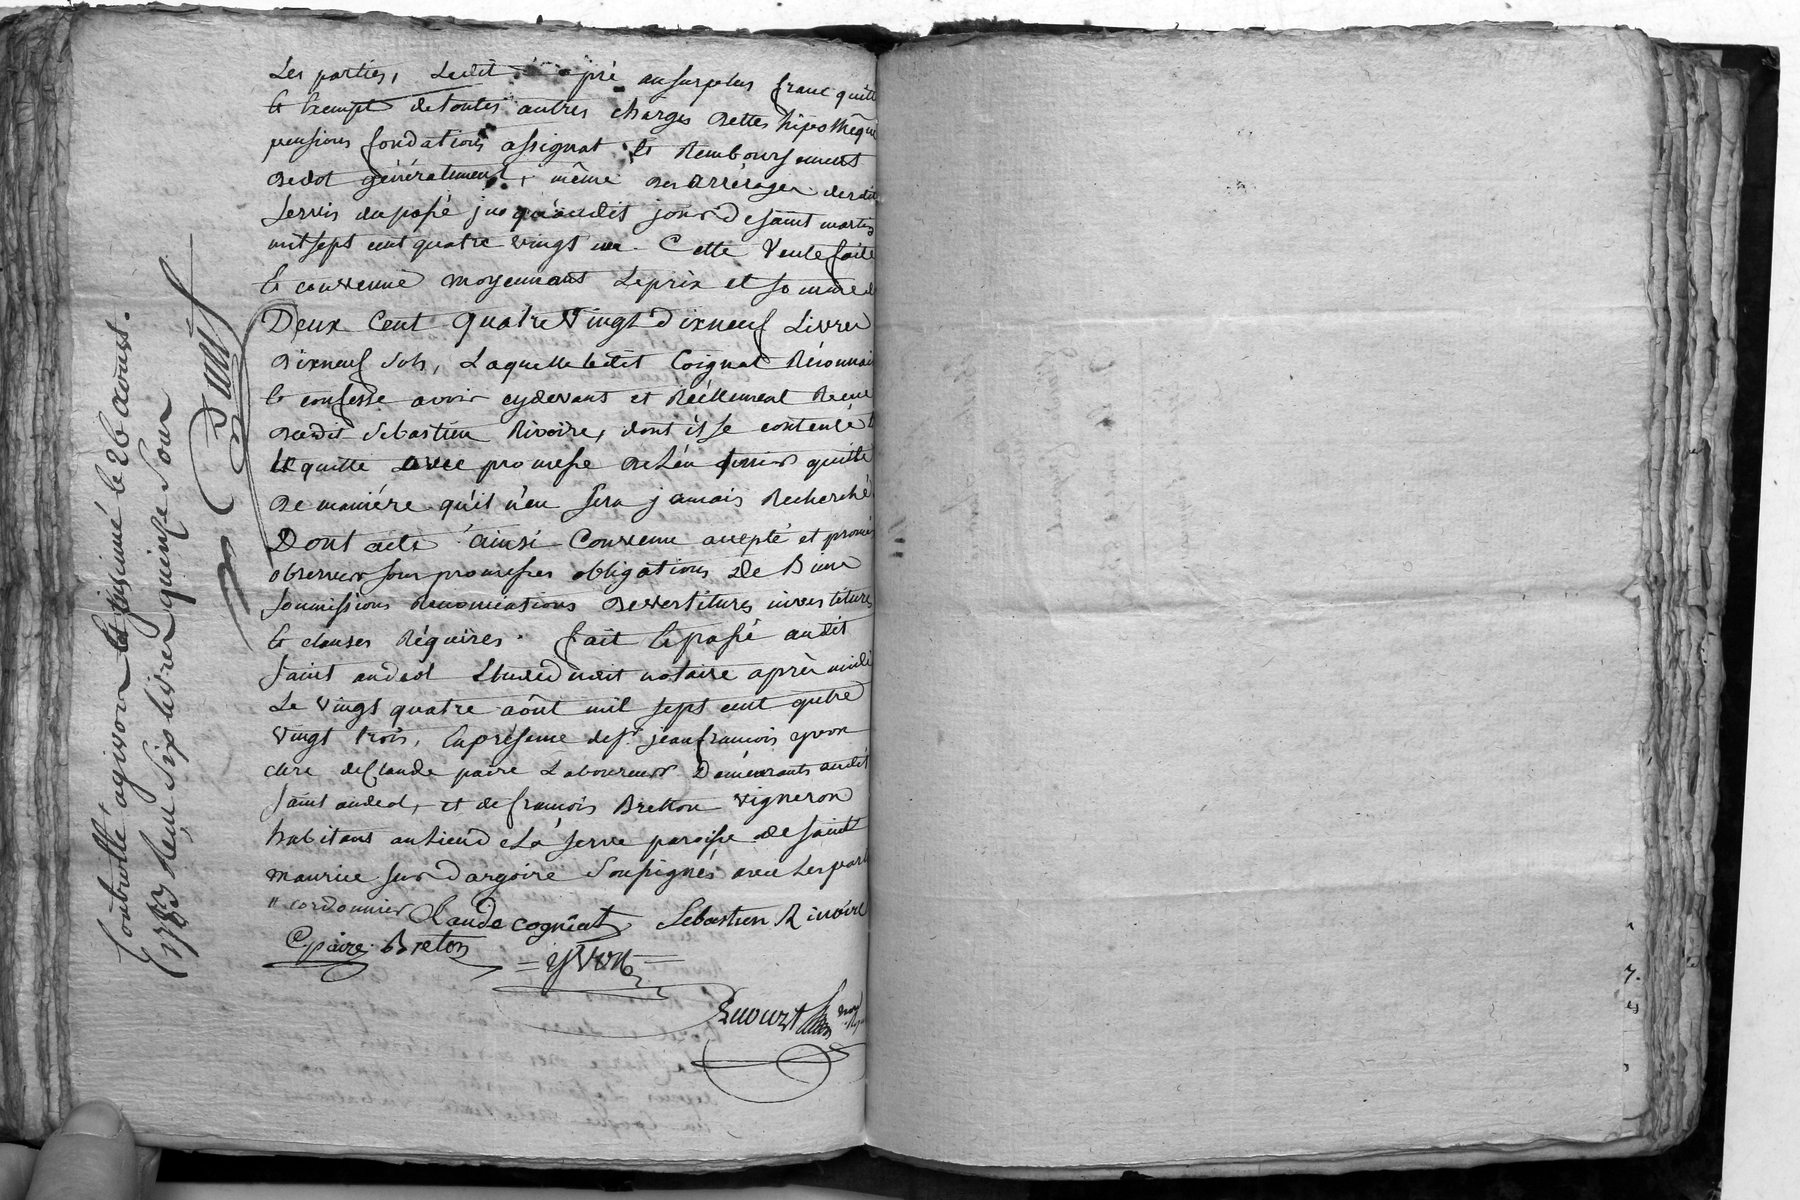 Les parties, Ledit pré au surplus franc quitte
et Exempt de toutes autres charges dettes hipothèque
pensions fondations assignat et Remboursement
de dot généralement, même des arrérages desdits
servis du passé jusqu'audit jour de saint martin
mil sept cent quatre vingt un. Cette Vente faite
et convenue moyennant Le prix et somme de
Deux Cent quatre Vingt dixneuf Livres
dixneuf sols, Laquelle ledit Coignat Réconnait
et confesse avoir cydevant et Réellement Recue
dudit Sebastien Rivoire, dont il se contente et
le quitte avec promesse de L'en tenir quitte
de maniére qu'il n'en sera jamais Recherché.
Dont acte ainsi Convenu accepté et promis
observer sous promesses obligations de Biens
soumissions Renonciations devestitures investitures
et clauses Réquises. fait et passé audit
saint andeol Etude dudit notaire après midi
Le vingt quatre aôut mil sept cent qutre
vingt trois, En présence de sr. jean francois yvon
clerc de Claude paire Laboureur Démeurants audit
saint andeol, et de francois Bretton vigneron
habitant au Lieu de La serve paroisse de saint
maurice sur dargoire soussignés avec Les parties
" cordonnier Claude cogniat Sebastien Rivoire
C paire Breton
= yvon =
Controllé a givors et insinué le 26 aoust.
1783 Reçu Six livres quinse Sous